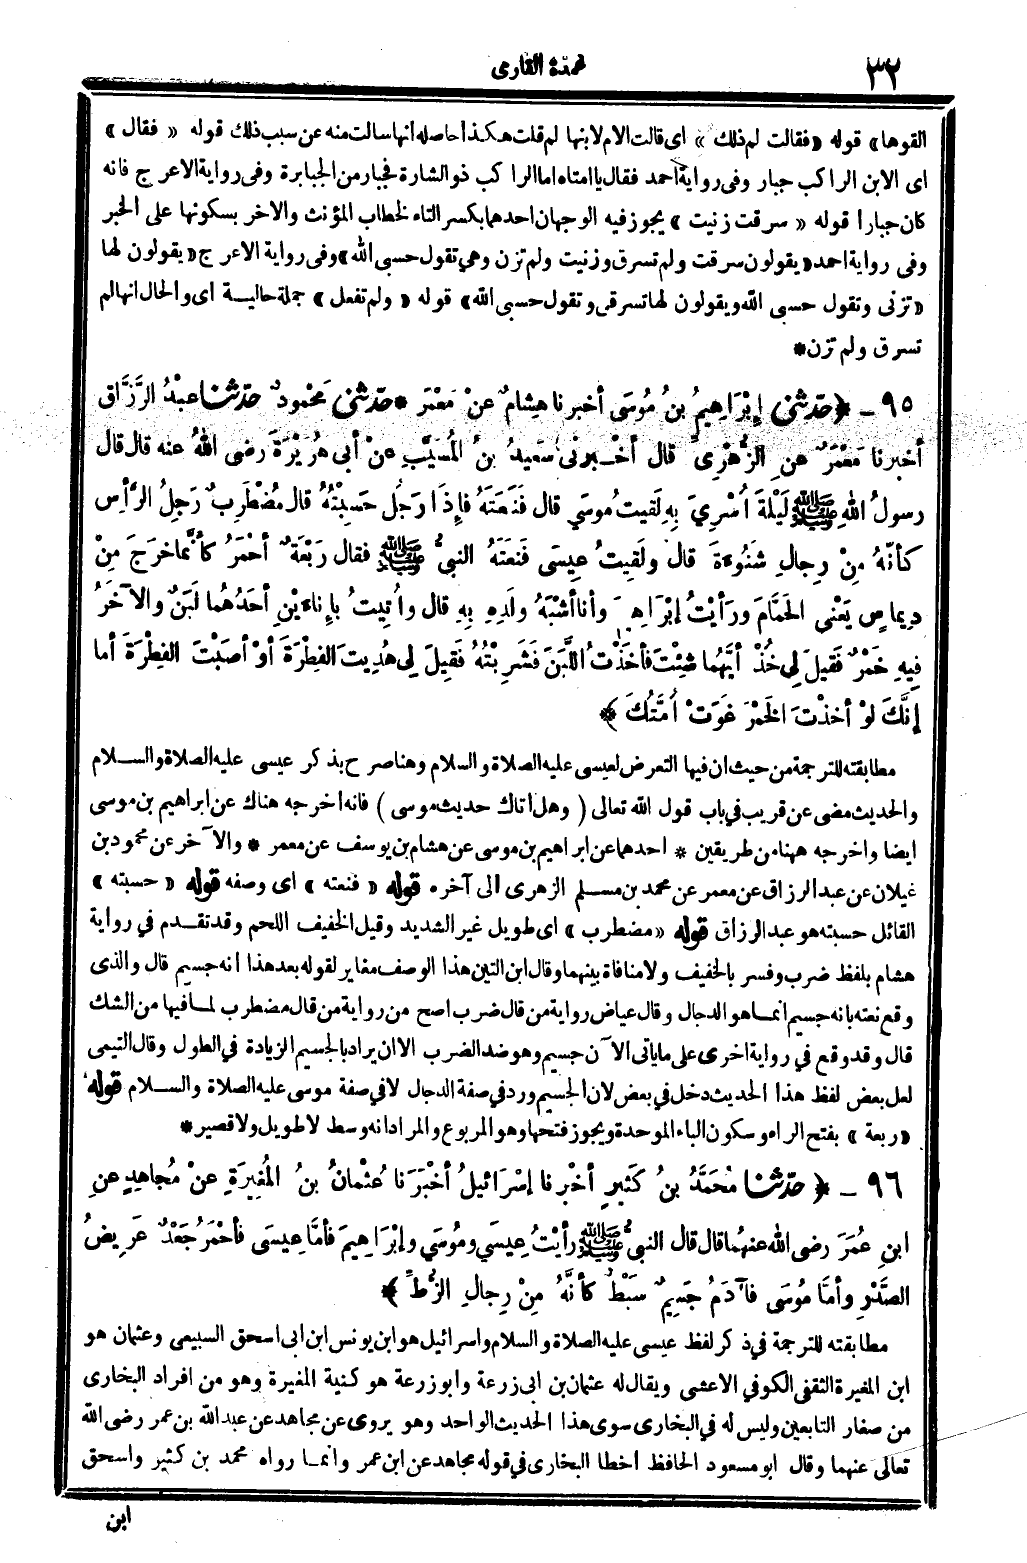 ٣٢
عمدة القارى
القوها» قوله «فقالت لم ذلك» اى قالت الام لابنها لم قلت هكذا حاصله انها سالت منه عن سبب ذلك قوله «فقال»
اى الابن الراكب جبار وفى رواية احمد فقال يا امتاه اما الراكب ذو الشارة فجبار من الجبابرة وفى رواية الاعرج فانه
كان جبارا قوله «سرقت زنيت» يجوز فيه الوجهان احدهما بكسر التاء لخطاب المؤنث والاخر بسكونها على الخبر
وفى رواية احمد «يقولون سرقت ولم تسرق وزنيت ولم تزن وهي تقول حسبى الله» وفى رواية الاعرج «يقولون لها
«تزنى وتقول حسبى الله ويقولون لها تسرقى وتقول حسبى الله» قوله «ولم تفعل» جملة حالية اى والحال انها لم
تسرق ولم تزن*
٩٥ ـ ﴿حدثنى إبْرَاهِيمُ بنُ مُوسَى أخبرنا هِشامٌ عنْ مَعْمَرٍ * حدثنى مَحْمُودٌ حدثنا عبْدُ الرَّزَّاقِ
أخبرنا مَعْمَرٌ عنِ الزُّهْرِىِّ قال أخبرنى سَعيدُ بنُ المُسَيَّبِ عنْ أبى هُرَيْرَةَ رضى اللهُ عنه قال قال
رسولُ اللهِ ﷺ لَيْلَةَ أُسْرِيَ بِهِ لَقيتُ مُوسَي قال فَنَعَتَهُ فإِذَا رَجُلٌ حَسِبْتُهُ قال مُضْطَرِبٌ رَجِلُ الرَّأْسِ
كأنَّهُ مِنْ رِجالِ شَنُوءَةَ قال ولَقِيتُ عِيسَى فَنَعَتَهُ النبىُّ ﷺ فقال رَبْعَةٌ أحْمَرُ كأنَّما خرَجَ مِنْ
دِيماسٍ يَعْنِي الحَمَّامَ ورَأيْتُ إبْرَاهِيمَ وأنا أشْبَهُ ولَدِهِ بِهِ قال وأُتِيتُ بإِناءَيْنِ أحَدُهُما لَبَنٌ والآخَرُ
فِيهِ خَمْرٌ فَقيلَ لِي خُذْ أيَّهُما شِئْتَ فأخَذْتُ اللَّبَنَ فَشَرِبْتُهُ فَقيلَ لِى هُدِيتَ الفِطْرَةَ أوْ أصَبْتَ الفِطْرَةَ أما
إنَّكَ لوْ أخذْتَ الخَمْرَ غَوَتْ أُمَّتُكَ﴾*
مطابقته للترجمة من حيث ان فيها التعرض لعيسى عليه الصلاة والسلام وهنا صرح بذكر عيسى عليه الصلاة والسلام
والحديث مضى عن قريب في باب قول الله تعالى (وهل اتاك حديث موسى) فانه اخرجه هناك عن ابراهيم بن موسى
ايضا واخرجه ههنا من طريقين * احدهما عن ابراهيم بن موسى عن هشام بن يوسف عن معمر * والآخر عن محمود بن
غيلان عن عبد الرزاق عن معمر عن محمد بن مسلم الزهرى الى آخره قوله «فنعته» اى وصفه قوله «حسبته»
القائل حسبته هو عبد الرزاق قوله «مضطرب» اى طويل غير الشديد وقيل الخفيف اللحم وقد تقدم في رواية
هشام بلفظ ضرب وفسر بالخفيف ولا منافاة بينهما وقال ابن التين هذا الوصف مغاير لقوله بعد هذا انه جسيم قال والذى
وقع نعته بانه جسيم انما هو الدجال وقال عياض رواية من قال ضرب اصح من رواية من قال مضطرب لما فيها من الشك
قال وقد وقع في رواية اخرى على ما ياتى الآن جسيم وهو ضد الضرب الا ان يراد بالجسيم الزيادة في الطول وقال التيمى
لعل بعض لفظ هذا الحديث دخل في بعض لان الجسيم ورد في صفة الدجال لا في صفة موسى عليه الصلاة والسلام قوله
«ربعة» بفتح الراء وسكون الباء الموحدة ويجوز فتحها وهو المربوع والمراد انه وسط لا طويل ولا قصير*
٩٦ ـ ﴿حدثنا مُحَمَّدُ بنُ كَثيرٍ أخْبرنا إسْرَائيلُ أخْبَرَنا عُثْمانُ بنُ المُغِيرَةِ عنْ مُجاهِدٍ عنِ
ابنِ عُمَرَ رضى الله عنهُما قال قال النبيُّ ﷺ رأيْتُ عِيسَي ومُوسَي وإبْرَاهِيمَ فأمَّا عِيسَى فأحْمَرُ جَعْدٌ عَرِيضُ
الصَّدْرِ وأمَّا مُوسَى فآدَمُ جَسِيمٌ سَبْطٌ كأنَّهُ مِنْ رِجالِ الزُّطِّ﴾*
مطابقته للترجمة في ذكر لفظ عيسى عليه الصلاة والسلام واسرائيل هو ابن يونس ابن ابى اسحق السبيعى وعثمان هو
ابن المغيرة الثقفى الكوفي الاعشى ويقال له عثمان بن ابى زرعة وابو زرعة هو كنية المغيرة وهو من افراد البخارى
من صغار التابعين وليس له في البخارى سوى هذا الحديث الواحد وهو يروى عن مجاهد عن عبد الله بن عمر رضى الله
تعالى عنهما وقال ابو مسعود الحافظ اخطا البخارى في قوله مجاهد عن ابن عمر وانما رواه محمد بن كثير واسحق
ابن